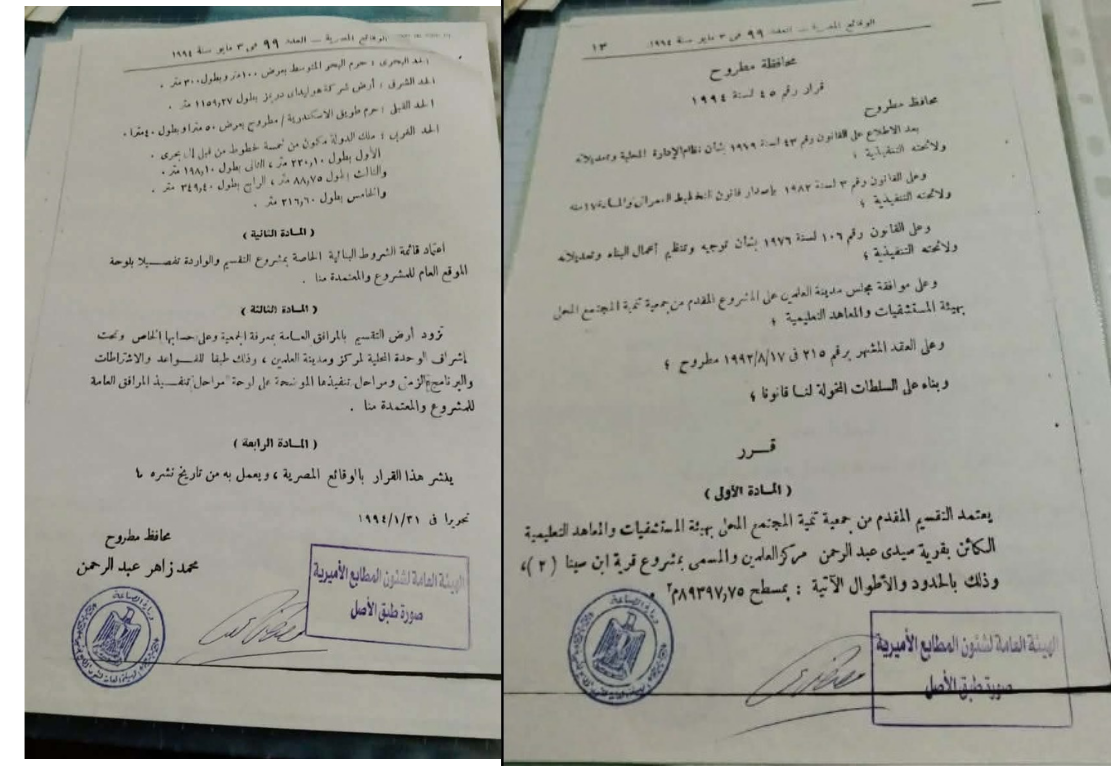 الوقائع المصرية – العدد ٩٩ فى ٣ مايو سنة ١٩٩٤ ١٣
محافظة مطروح
قرار رقم ٤٥ لسنة ١٩٩٤
محافظ مطروح
بعد الاطلاع على القانون رقم ٤٣ لسنة ١٩٧٩ بشأن نظام الإدارة المحلية وتعديلاته
ولائحته التنفيذية ؛
وعلى القانون رقم ٣ لسنة ١٩٨٢ بإصدار قانون التخطيط العمرانى والمادة ١٧ منه
ولائحته التنفيذية ؛
وعلى القانون رقم ١٠٦ لسنة ١٩٧٦ بشأن توجيه وتنظيم أعمال البناء وتعديلاته
ولائحته التنفيذية ؛
وعلى موافقة مجلس مدينة العلمين على المشروع المقدم من جمعية تنمية المجتمع المحلى
بهيئة المستشفيات والمعاهد التعليمية ؛
وعلى العقد المشهر برقم ٢١٥ فى ١٩٩٢/٨/١٧ مطروح ؛
وبناء على السلطات المخولة لنا قانونا ؛
قـــرر
( المــادة الأولى )
يعتمد التقسيم المقدم من جمعية تنمية المجتمع المحلى بهيئة المستشفيات والمعاهد التعليمية
الكائن بقرية سيدى عبد الرحمن مركز العلمين والمسمى بمشروع قرية ابن سينا ( ٢ )،
وذلك بالحدود والأطوال الآتية : بمسطح ٨٩٣٩٧,٧٥م٢ .
الهيئة العامة لشئون المطابع الأميرية
صورة طبق الأصل
الوقائع المصرية – العدد ٩٩ فى ٣ مايو سنة ١٩٩٤
الحد البحرى : حرم البحر المتوسط بعرض ١٠٠متر وبطول ٣٠٠ متر .
الحد الشرقى : أرض شركة هوليداى دريمز بطول ١١٥٩,٢٧ متر .
الحد القبلى : حرم طريق الاسكندرية / مطروح بعرض ٥٠ مترا وبطول ٤٠ مترا .
الحد الغربى : ملك الدولة مكون من خمسة خطوط من قبلى إلى بحرى .
الأول بطول ٢٣٠,١٠ متر ، الثانى بطول ١٩٨,١٠ متر .
والثالث بطول ٨٨,٧٥ متر ، الرابع بطول ٣٤٩,٤٠ متر .
والخامس بطول ٢١٦,٦٠ متر .
( المــادة الثانية )
اعتماد قائمة الشروط البنائية الخاصة بمشروع التقسيم والواردة تفصــيلا بلوحة
الموقع العام للمشروع والمعتمدة منا .
( المــادة الثالثة )
تزود أرض التقسيم بالمرافق العــامة بمعرفة الجمعية وعلى حسابها الخاص وتحت
إشراف الوحدة المحلية لمركز ومدينة العلمين ، وذلك طبقا للقــواعد والاشتراطات
والبرنامج الزمنى ومراحل تنفيذها الموضحة على لوحة مراحل تنفــيذ المرافق العامة
للمشروع والمعتمدة منا .
( المــادة الرابعة )
ينشر هذا القرار بالوقائع المصرية ، ويعمل به من تاريخ نشره ؛
تحريرا فى ١٩٩٤/١/٣١
محافظ مطروح
محمد زاهر عبد الرحمن
الهيئة العامة لشئون المطابع الأميرية
صورة طبق الأصل